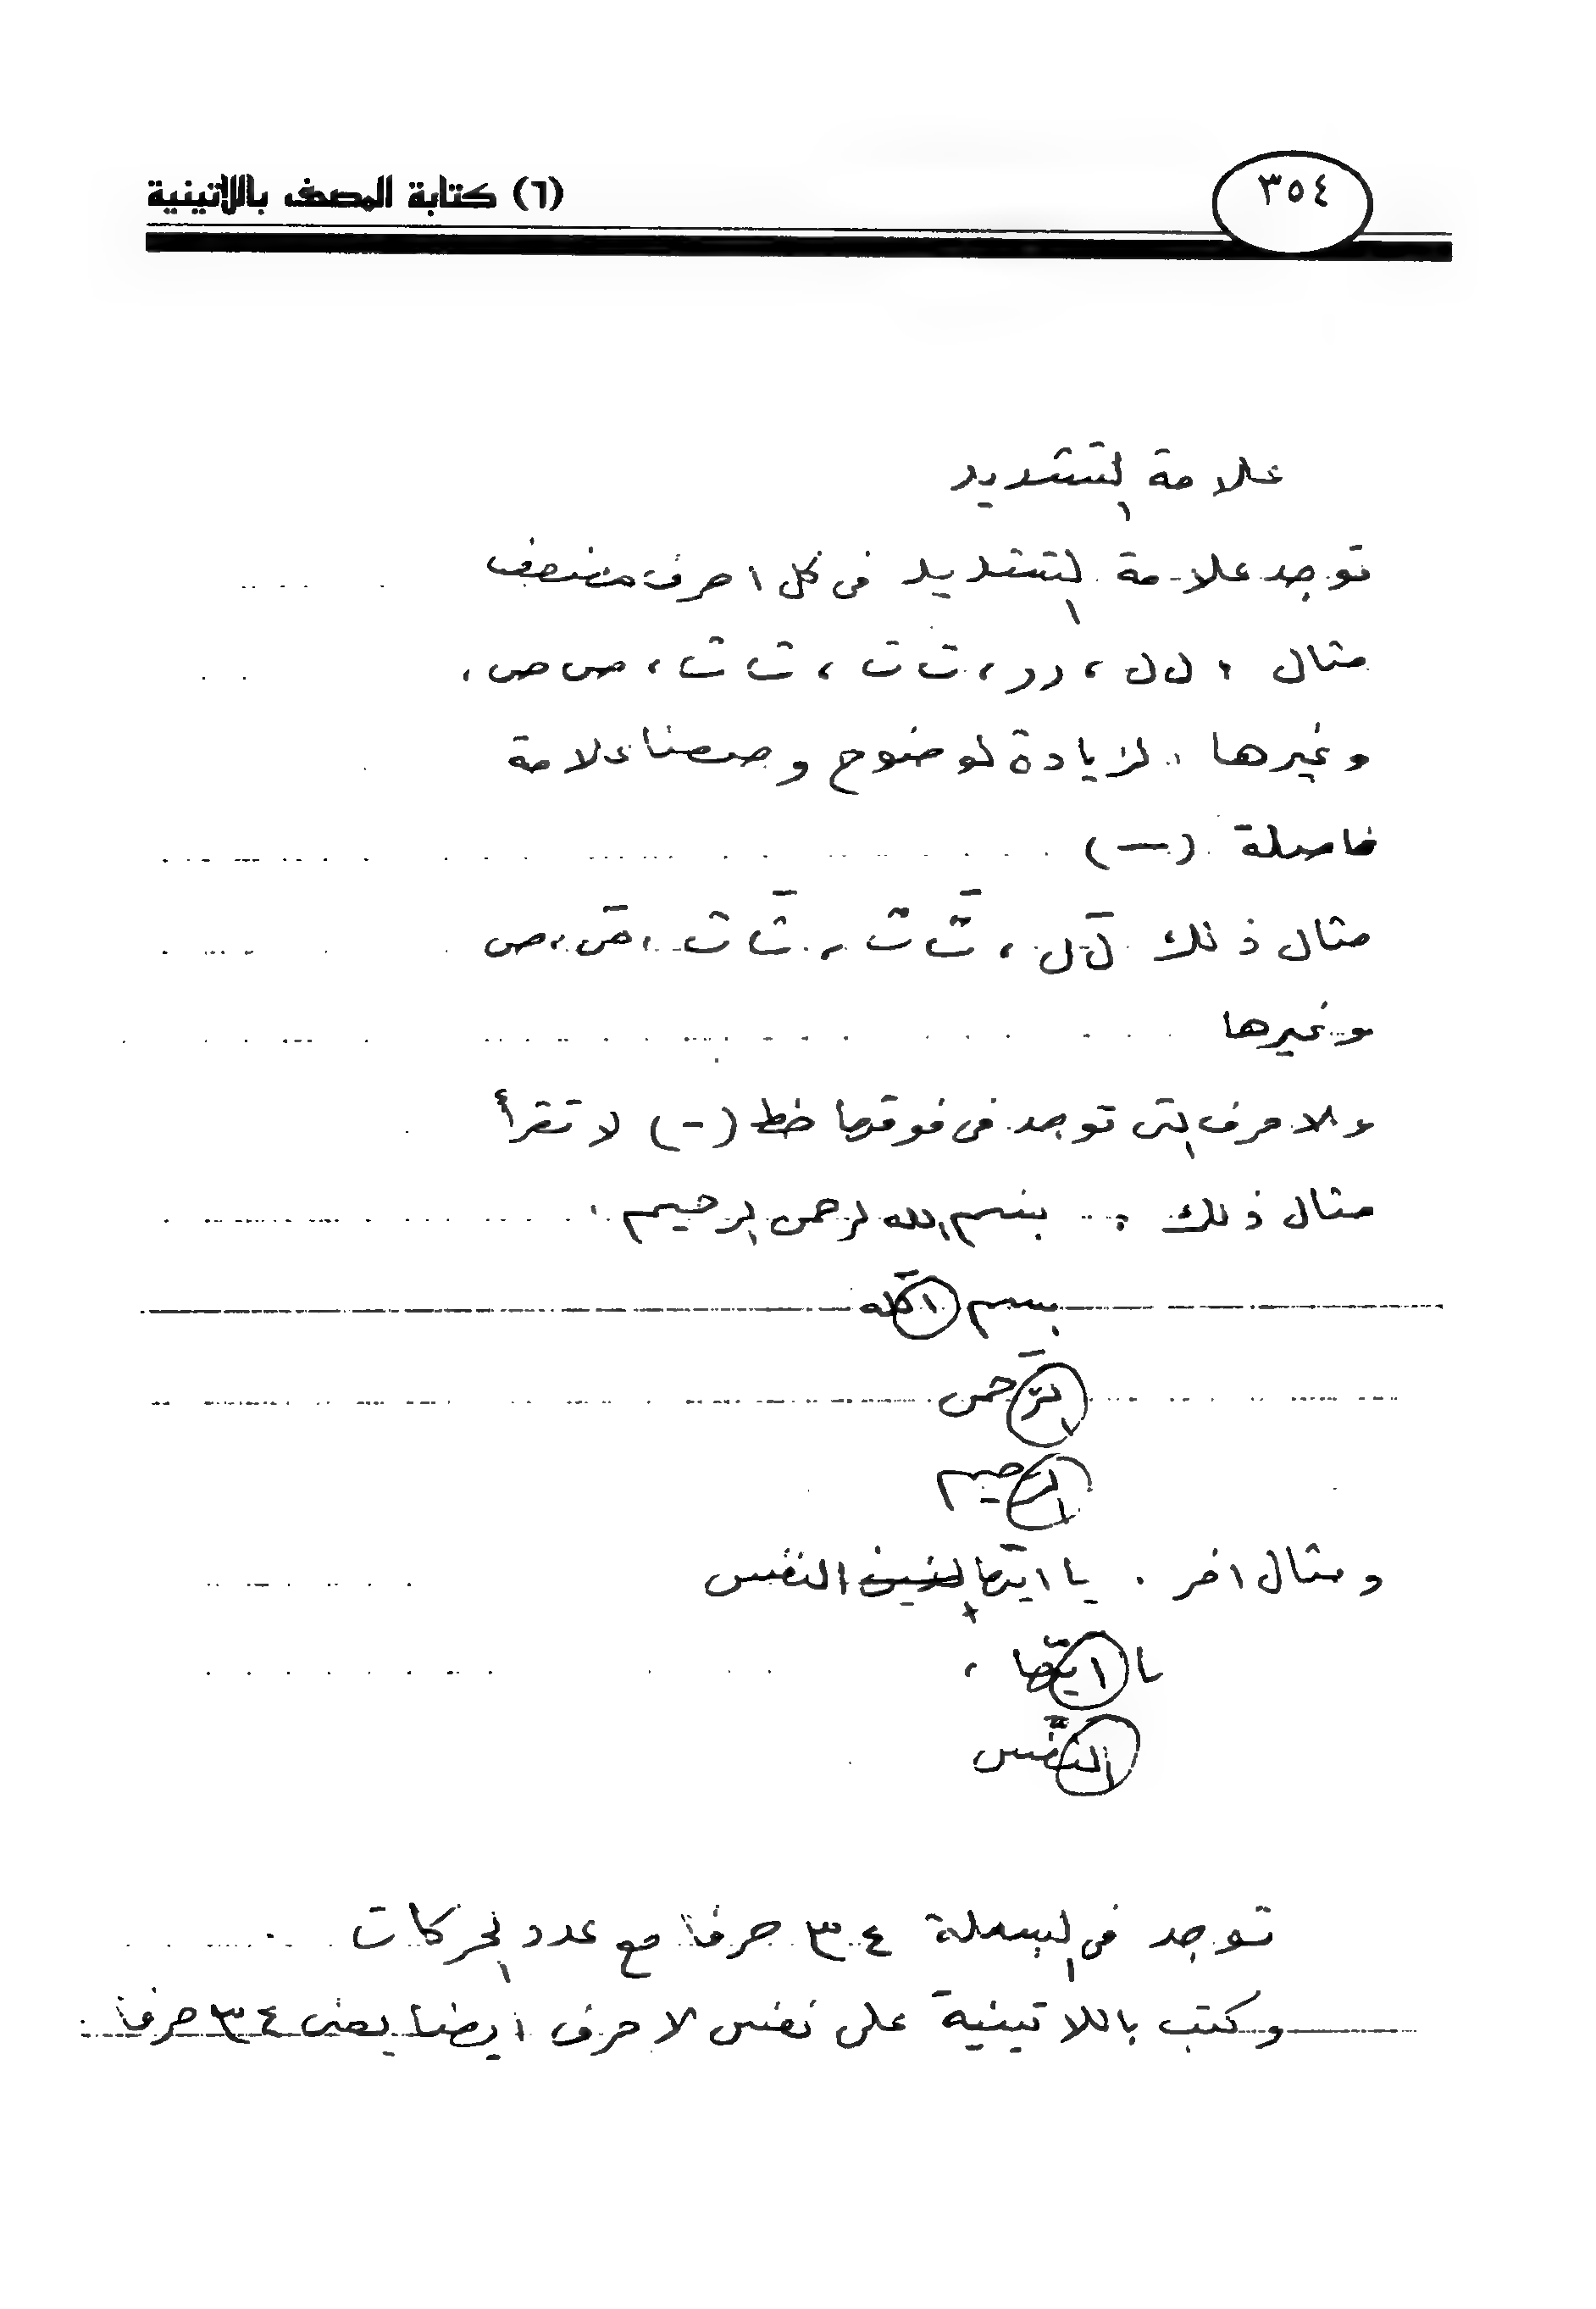 ٣٥٤
(٦) كتابة المصحف باللاتينية
علامة التشديد
توجد علامة التشديد فى كل احرف مضعف
مثال : ل ل ، ر ر ، ت ت ، ث ث ، ص ص ،
وغيرها . لزيادة لوضوح وضعنا علامة
فاصلة (—)
مثال ذلك ل̄ ل ، ت̄ ت ، ث̄ ث ، ص̄ ، ص
وغيرها
والاحرف التى توجد فى فوقها خط (-) لا تقرأ
مثال ذلك : بسم الله لرحمن الرحيم .
بسم الله
الرّحمن
الرحيم
ومثال اخر . يا ايتها النفس
يا ايتّها ،
النّفس
توجد فى البسملة ٣٤ حرفاً مع عدد الحركات
وكتب باللاتينية على نفس لاحرف ايضا يعنى ٣٤ حرفاً